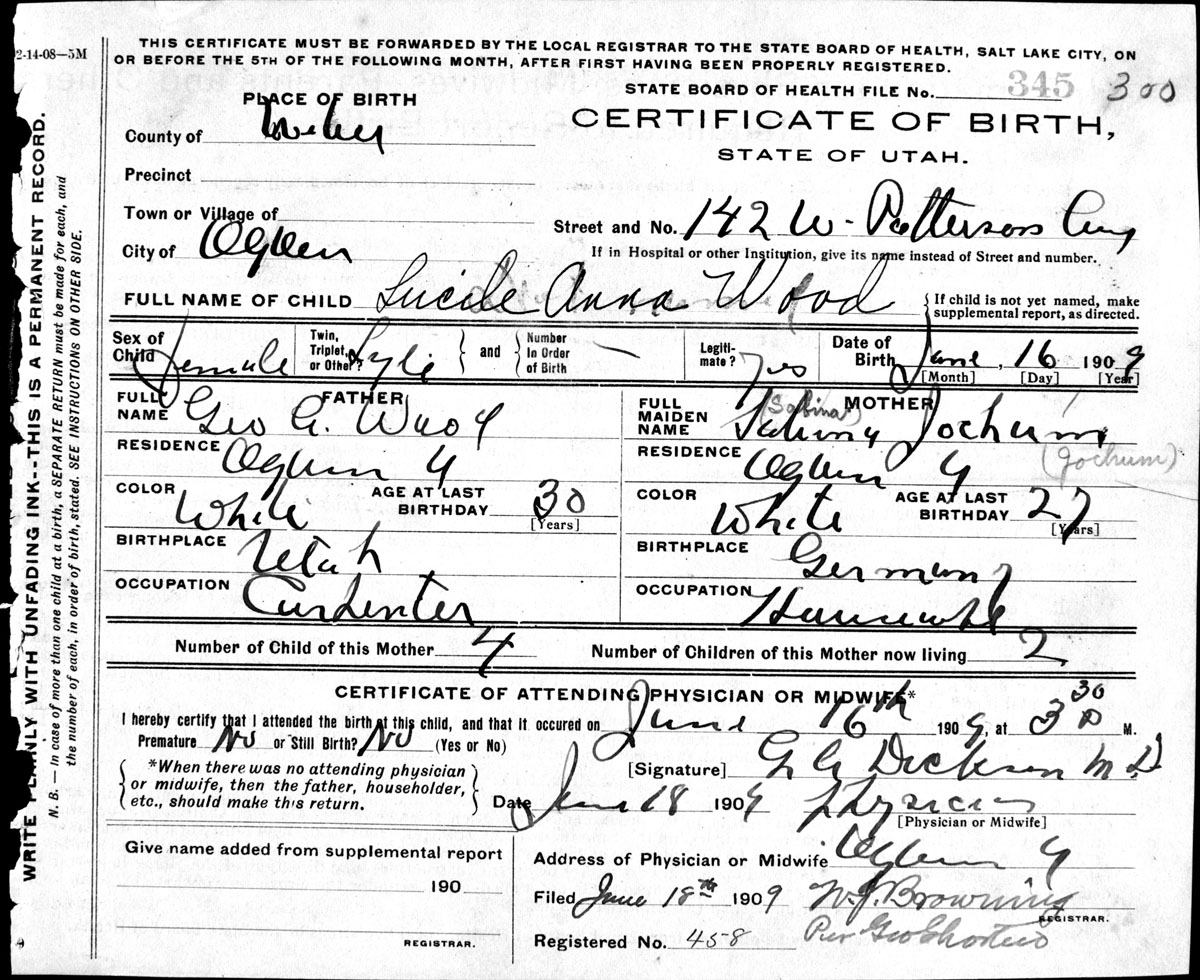 2-14-08—5M
THIS CERTIFICATE MUST BE FORWARDED BY THE LOCAL REGISTRAR TO THE STATE BOARD OF HEALTH, SALT LAKE CITY, ON
OR BEFORE THE 5TH OF THE FOLLOWING MONTH, AFTER FIRST HAVING BEEN PROPERLY REGISTERED.
STATE BOARD OF HEALTH FILE No. 345 300
PLACE OF BIRTH
CERTIFICATE OF BIRTH,
STATE OF UTAH.
County of Weber
Precinct
Town or Village of
Street and No. 142 W. Patterson Ave
City of Ogden
If in Hospital or other Institution, give its name instead of Street and number.
FULL NAME OF CHILD Lucile Anna Wood
{If child is not yet named, make
supplemental report, as directed.
Sex of Child Female
Twin, Triplet, or Other?
and
Number In Order of Birth —
Legiti-mate? Yes
Date of Birth June, 16 1909
[Month] [Day] [Year]
FATHER
FULL NAME Geo G. Wood
RESIDENCE Ogden
COLOR White
AGE AT LAST BIRTHDAY 30
[Years]
BIRTHPLACE Utah
OCCUPATION Carpenter
MOTHER
FULL MAIDEN NAME (Sabina) Jochum
RESIDENCE Ogden (Jochum)
COLOR White
AGE AT LAST BIRTHDAY 27
[Years]
BIRTHPLACE Germany
OCCUPATION Housewife
Number of Child of this Mother 4
Number of Children of this Mother now living 2
CERTIFICATE OF ATTENDING PHYSICIAN OR MIDWIFE*
I hereby certify that I attended the birth of this child, and that it occured on June 16th 1909, at 3 30 P M.
Premature No or Still Birth? No (Yes or No)
{*When there was no attending physician
or midwife, then the father, householder,
etc., should make this return.}
[Signature] Dickson M.D
Date June 18 1909 Physician
[Physician or Midwife]
Give name added from supplemental report
190
REGISTRAR.
Address of Physician or Midwife Ogden
Filed June 18th 1909 W.J. Browning
REGISTRAR.
Registered No. 458 Per Geo
WRITE PLAINLY WITH UNFADING INK--THIS IS A PERMANENT RECORD.
N. B. — In case of more than one child at a birth, a SEPARATE RETURN must be made for each, and
the number of each, in order of birth, stated. SEE INSTRUCTIONS ON OTHER SIDE.